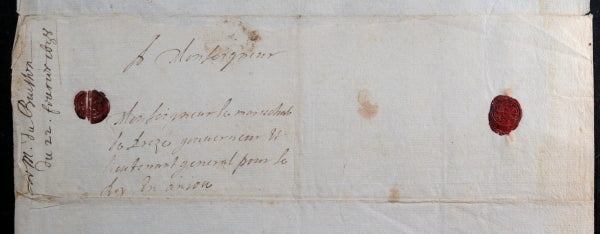 A Monseigneur
Monseigneur le mareschal
de Brezé gouverneur et
lieutenant general pour le
Roy En Anjou
M. du Buisson
du 22. fevrier 1638